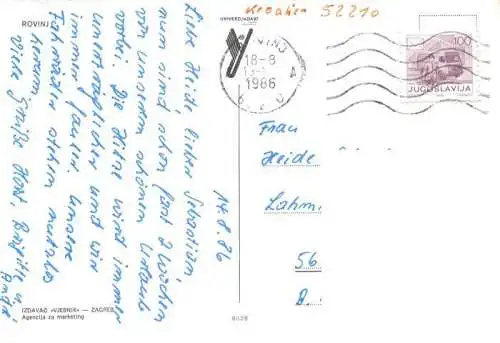 ROVINJ
Kroatien 52210
UNIVERZIJADA '87
ROVINJ
18-8
1986
100
JUGOSLAVIJA
14.8.86
Liebe Heide, lieber Sebastian,
nun sind schon fast 2 Wochen
von unserem schönen Urlaub
vorbei. Die Hitze wird immer
unerträglicher und wir
immer fauler. Unsere
Fahrräder stehen nutzlos
herum. Viele Grüße Horst, Brigitte u.
André
Frau
Heide
Lahm
56
IZDAVAČ «VJESNIK» — ZAGREB
Agencija za marketing